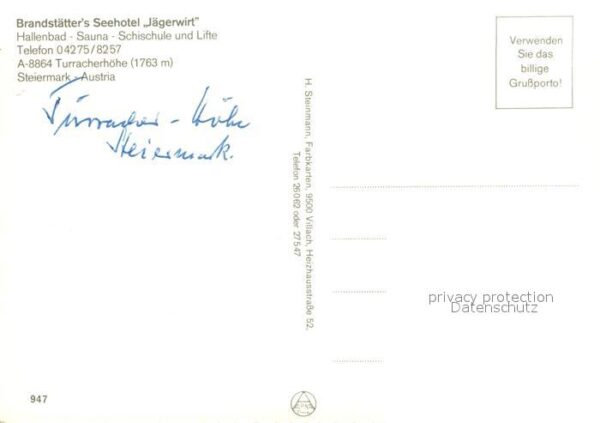 Brandstätter's Seehotel „Jägerwirt"
Hallenbad - Sauna - Schischule und Lifte
Telefon 04275/8257
A-8864 Turracherhöhe (1763 m)
Steiermark - Austria
Turracher - Höhe
Steiermark.
Verwenden
Sie das
billige
Grußporto!
H. Steinmann, Farbkarten, 9500 Villach, Heizhausstraße 52,
Telefon 26062 oder 27547
privacy protection
Datenschutz
947